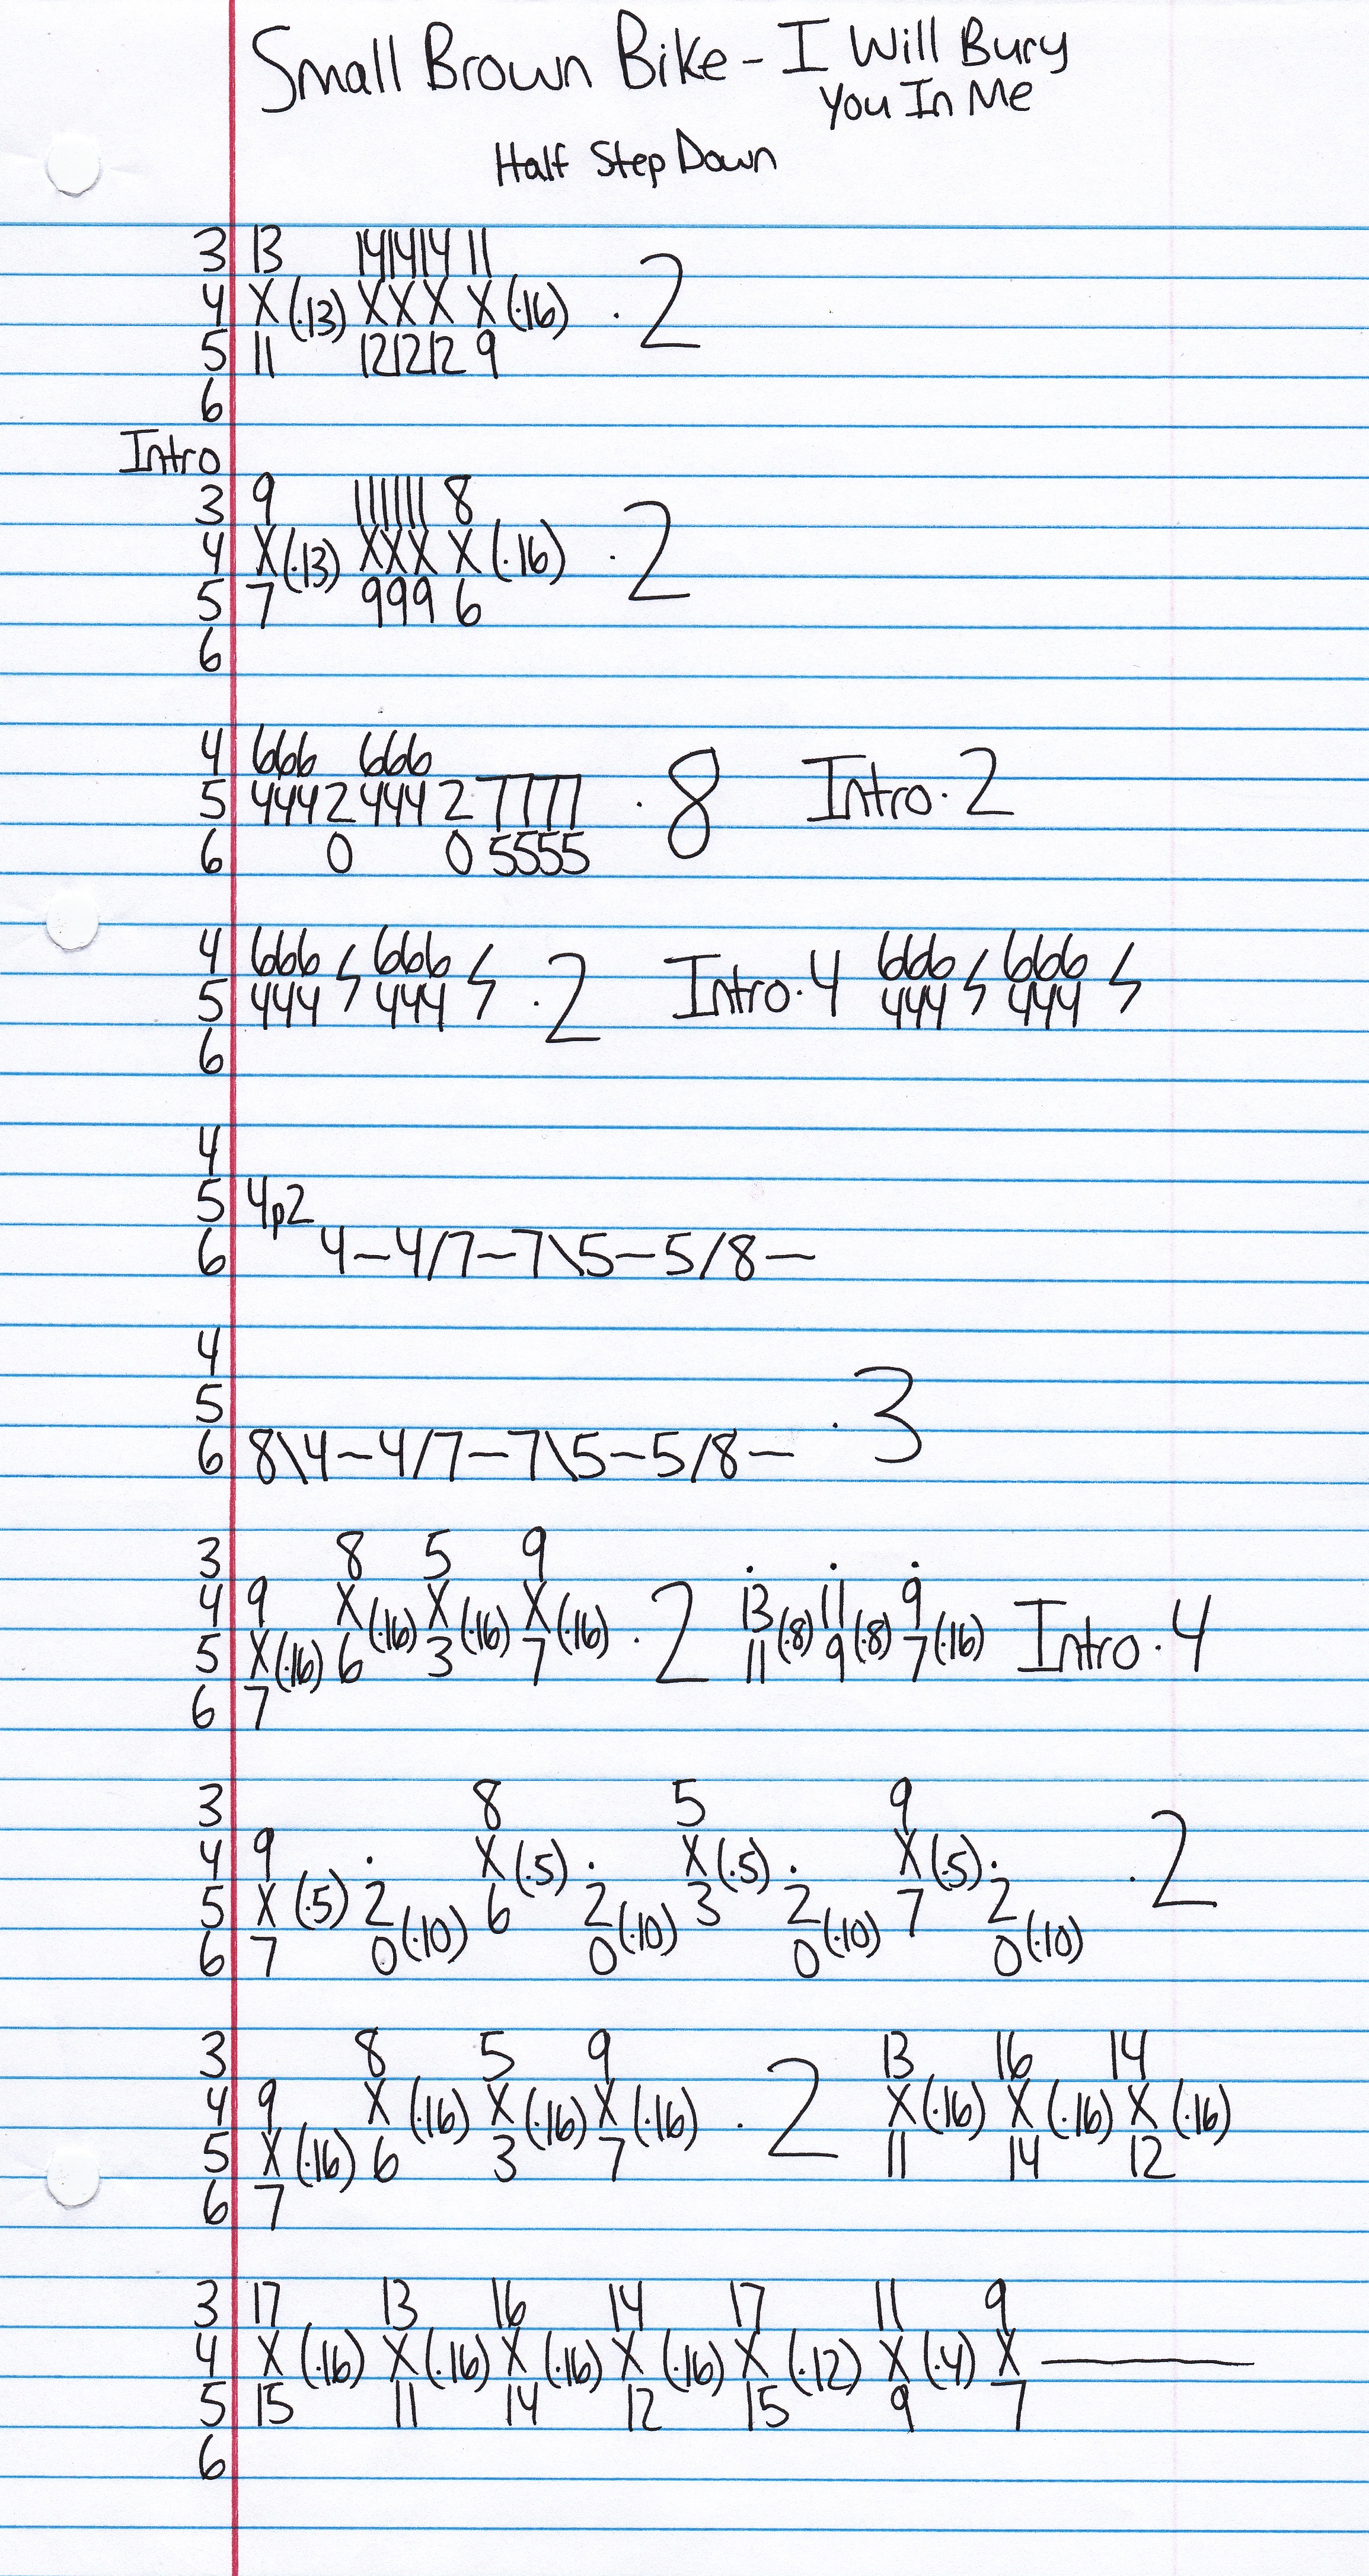 Small Brown Bike - I Will Bury
You In Me
Half Step Down
3 13 14 14 14 11
4 X (·13) X X X X (·16) · 2
5 11 12 12 12 9
6
Intro
3 9 11 11 11 8
4 X (·13) X X X X (·16) · 2
5 7 9 9 9 6
6
4 666 666
5 444 2 444 2 7777 · 8 Intro · 2
6 0 0 5555
4 666 666 666 666
5 444 444 · 2 Intro · 4 444 444
6
4
5 4p2
6 4–4/7–7\5–5/8–
4
5
6 8\4–4/7–7\5–5/8– · 3
3 8 5 9 · · ·
4 9 X (·16) X (·16) X (·16) · 2 13 (·8) 11 (·8) 9 (·16) Intro · 4
5 X (·16) 6 3 7 11 9 7
6 7
3 8 5 9
4 9 · X (·5) · X (·5) · X (·5) · · 2
5 X (·5) 2 6 2 3 2 7 2
6 7 0 (·10) 0 (·10) 0 (·10) 0 (·10)
3 8 5 9 13 16 14
4 9 X (·16) X (·16) X (·16) · 2 X (·16) X (·16) X (·16)
5 X (·16) 6 3 7 11 14 12
6 7
3 17 13 16 14 17 11 9
4 X (·16) X (·16) X (·16) X (·16) X (·12) X (·4) X ———
5 15 11 14 12 15 9 7
6